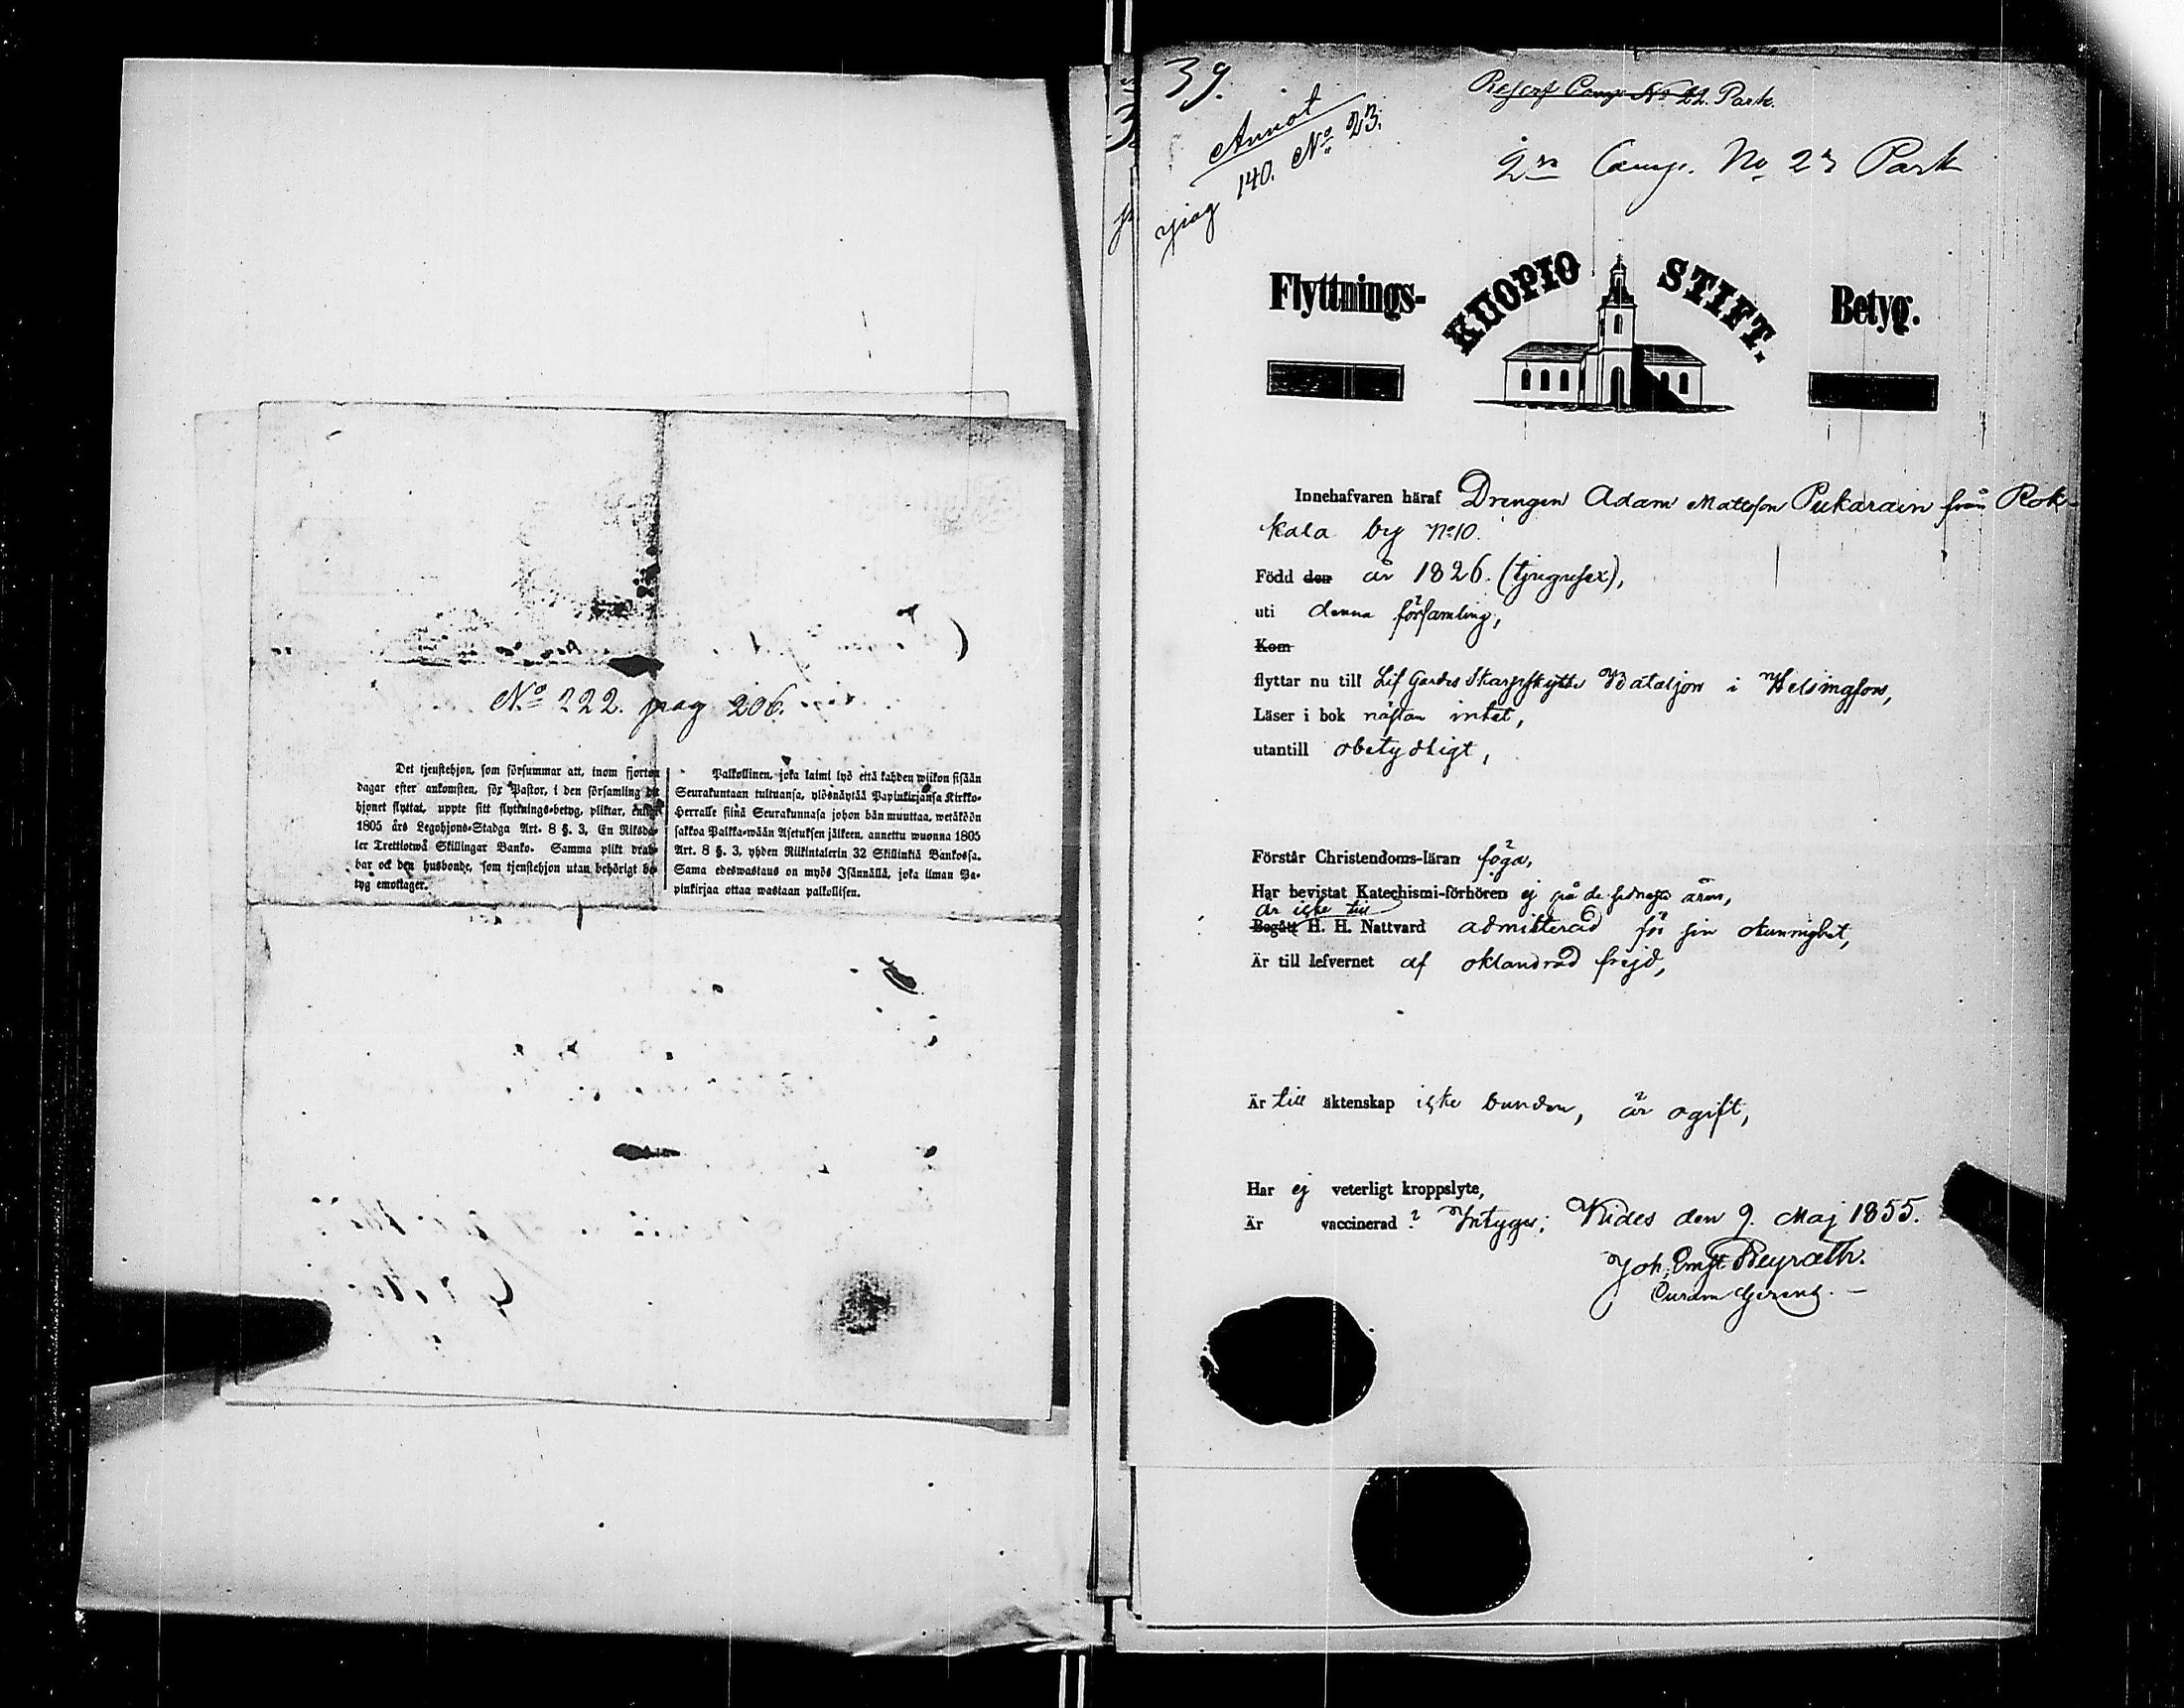 No 222. pag 206.
Det tjenstehjon, som försummar att, inom fjorton
dagar efter ankomsten, för Pastor, i den församling dit
hjonet flyttat, uppte sitt flyttnings-betyg, pliktar, enligt
1805 års Legohjons-Stadga Art. 8 §. 3, En Riksda-
ler Trettiotwå Skillingar Banko. Samma plikt drab-
bar ock den husbonde, som tjenstehjon utan behörigt be-
tyg emottager.
Palkollinen, joka laimi lyö että kahden wiikon sisään
Seurakuntaan tultuansa, ylösnäytää Papinkirjansa Kirkko-
Herralle siinä Seurakunnasa johon hän muuttaa, wetäköön
sakkoa Palkka-wään Asetuksen jälkeen, annettu wuonna 1805
Art. 8 §. 3, yhden Riikintalerin 32 Skillinkiä Bankossa.
Sama edeswastaus on myös Isännällä, joka ilman Pa-
pinkirjaa ottaa wastaan palkollisen.
39.
Annot
pag 140. No 23.
Reserf Comp No 22. Park.
2n Comp. No 23 Park
Flyttnings- KUOPIO STIFT. Betyg.
Innehafvaren häraf Drengen Adam Matsson Pukarain från Rok-
kala by No 10.
Född den år 1826.
uti denna församling,
Kom
flyttar nu till Lif Gardes Skarpskytte Bataljon i Helsingfors,
Läser i bok nästan intet,
utantill obetydligt,
Förstår Christendoms-läran föga,
Har bevistat Katechismi-förhören ej på de sednaste åren,
är icke till
Begått H. H. Nattvard admitterad för sin okunnighet,
Är till lefvernet af oklandrad frejd,
Är till äktenskap icke bunden, är ogift,
Har ej veterligt kroppslyte,
Är vaccinerad? Intygar; Kides den 9. Maj 1855.
Joh. Ernst Beyrath.
Curam Gerens.